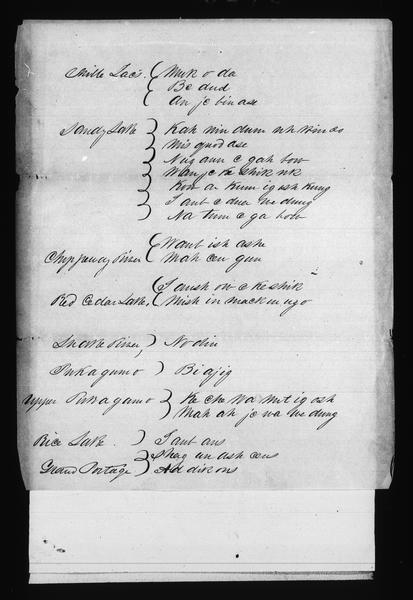 Mille Lacs. ( Muk o da
Be dud
An je bin ase
Sandy Lake ) Kah nin dum
Mis quod ase
Nug aun e gah bow
Wan je ke shik uk
Kow a Kum ig ish kung
I aub e dua we dung
Na tum e ga bow
Chippeway River ( Waub ish ashe
Mah een gun
Red Cedar Lake. ( I aush ow e ke shik
Mish in mack in ugo
Snake River, ) No din
Pukagumo ) Bi aj ig
Upper Pukagamo ) Ke che Wa mit ig osh
Mah ah je wa we dung
Rice Lake. ) I aub ans
Shag un ash eens
Grand Portage ) Ad dik ons